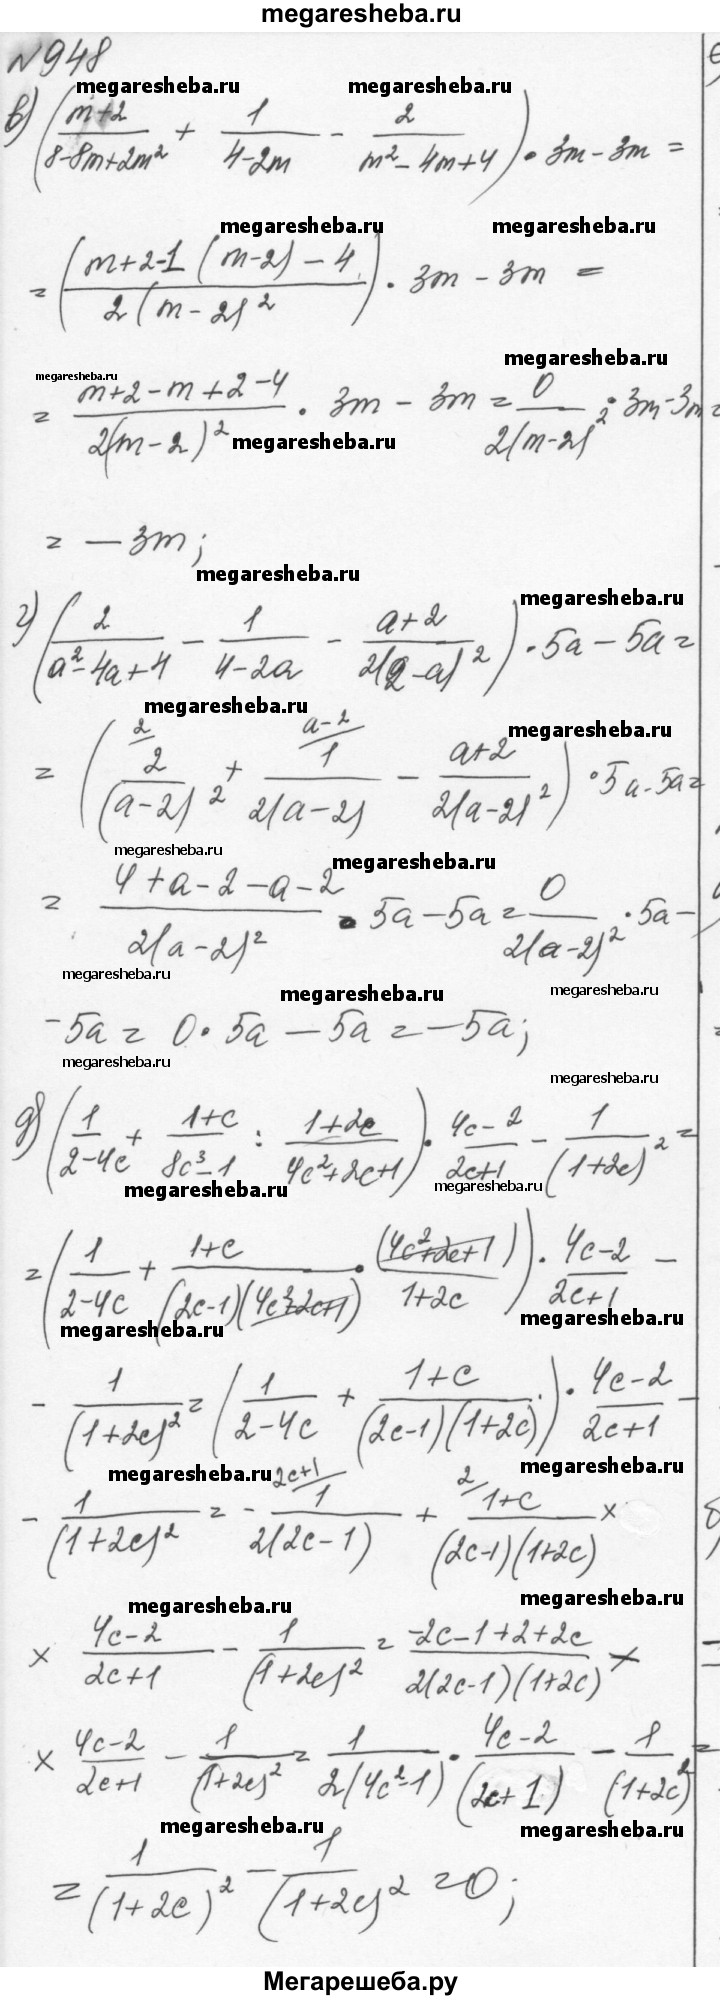 megaresheba.ru
№948
megaresheba.ru megaresheba.ru
в) ((m+2)/(8-8m+2m²) + 1/(4-2m) - 2/(m²-4m+4)) · 3m - 3m =
megaresheba.ru megaresheba.ru
= ((m+2-1(m-2)-4)/(2(m-2)²)) · 3m - 3m =
megaresheba.ru megaresheba.ru
= (m+2-m+2-4)/(2(m-2)²) · 3m - 3m = 0/(2(m-2)²) · 3m - 3m =
megaresheba.ru
= -3m;
megaresheba.ru
megaresheba.ru
г) (2/(a²-4a+4) - 1/(4-2a) - (a+2)/(2(2-a)²)) · 5a - 5a =
megaresheba.ru
2/ a-2/
megaresheba.ru
= (2/(a-2)² + 1/(2(a-2)) - (a+2)/(2(a-2)²)) · 5a - 5a =
megaresheba.ru megaresheba.ru
= (4+a-2-a-2)/(2(a-2)²) · 5a - 5a = 0/(2(a-2)²) · 5a -
megaresheba.ru megaresheba.ru megaresheba.ru
-5a = 0 · 5a - 5a = -5a;
megaresheba.ru megaresheba.ru
д) (1/(2-4c) + (1+c)/(8c³-1) : (1+2c)/(4c²+2c+1)) · (4c-2)/(2c+1) - 1/(1+2c)² =
megaresheba.ru megaresheba.ru
= (1/(2-4c) + (1+c)/((2c-1)(4c²+2c+1)) · (4c²+2c+1)/(1+2c)) · (4c-2)/(2c+1) -
megaresheba.ru megaresheba.ru
- 1/(1+2c)² = (1/(2-4c) + (1+c)/((2c-1)(1+2c))) · (4c-2)/(2c+1) -
megaresheba.ru 2c+1/ 2/ megaresheba.ru
- 1/(1+2c)² = - 1/(2(2c-1)) + (1+c)/((2c-1)(1+2c)) ×
megaresheba.ru megaresheba.ru
× (4c-2)/(2c+1) - 1/(1+2c)² = (-2c-1+2+2c)/(2(2c-1)(1+2c)) ×
× (4c-2)/(2c+1) - 1/(1+2c)² = 1/(2(4c²-1)) · (4c-2)/(2c+1) - 1/(1+2c)² =
megaresheba.ru megaresheba.ru
= 1/(1+2c)² - 1/(1+2c)² = 0;
Мегарешеба.ру